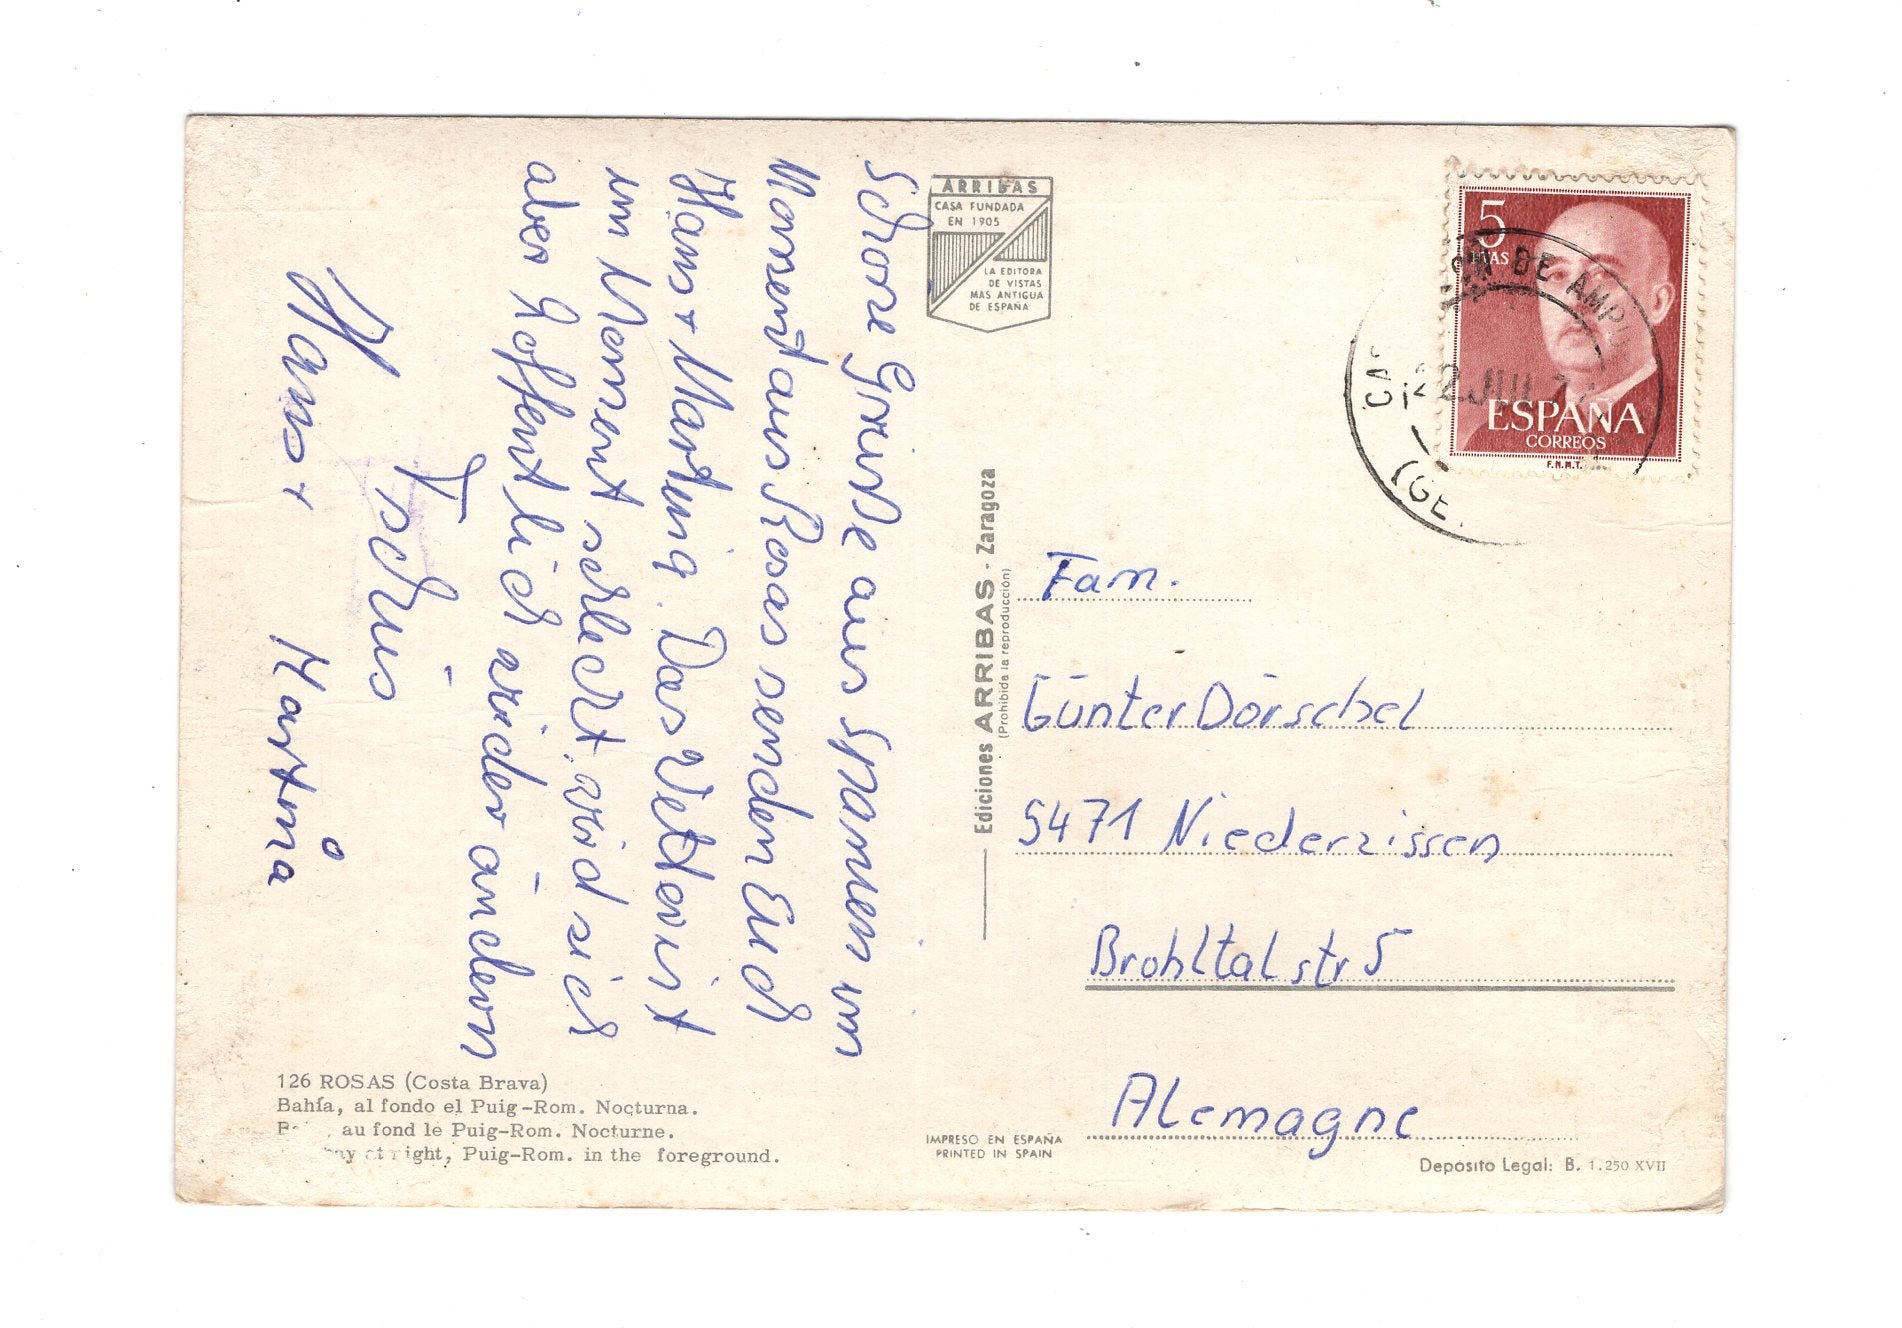 Schöne Grüße aus Spanien im
Moment aus Rosas senden Euch
Hans + Martina. Das Wetter ist
im Moment schlecht wird sich
aber hoffentlich wieder ändern
Tschüs
Hans +
Martina
ARRIBAS
CASA FUNDADA
EN 1905
LA EDITORA
DE VISTAS
MAS ANTIGUA
DE ESPAÑA
Ediciones ARRIBAS - Zaragoza
(Prohibida la reproducción)
5
PTAS
ESPAÑA
CORREOS
F.N.M.T.
DE AMPU
22 JUL
(GE
Fam.
Günter Dörschel
5471 Niederzissen
Brohltalstr 5
Alemagne
126 ROSAS (Costa Brava)
Bahía, al fondo el Puig-Rom. Nocturna.
au fond le Puig-Rom. Nocturne.
Bay at night, Puig-Rom. in the foreground.
IMPRESO EN ESPAÑA
PRINTED IN SPAIN
Depósito Legal: B. 1.250 XVII